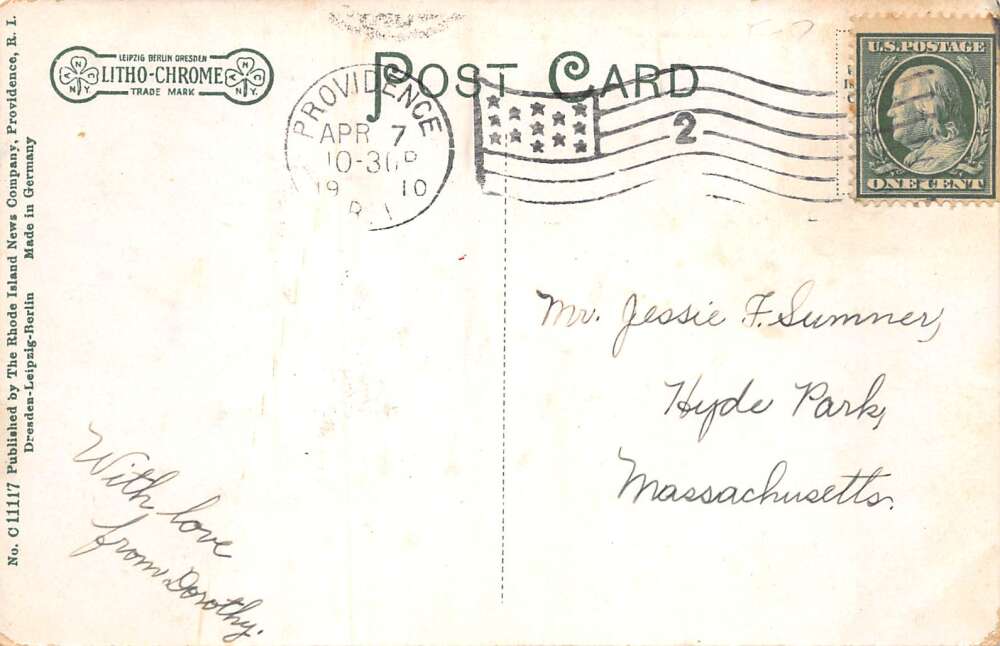 No. C 11117 Published by The Rhode Island News Company, Providence, R. I.
Dresden-Leipzig-Berlin Made in Germany
LEIPZIG BERLIN DRESDEN
LITHO-CHROME
TRADE MARK
A N C
N.Y.
A N C
N.Y.
POST CARD
PROVIDENCE
APR 7
10-30P
19 10
R.I.
2
U.S. POSTAGE
ONE CENT
Mr. Jessie F. Sumner,
Hyde Park,
Massachusetts.
With love
from Dorothy.